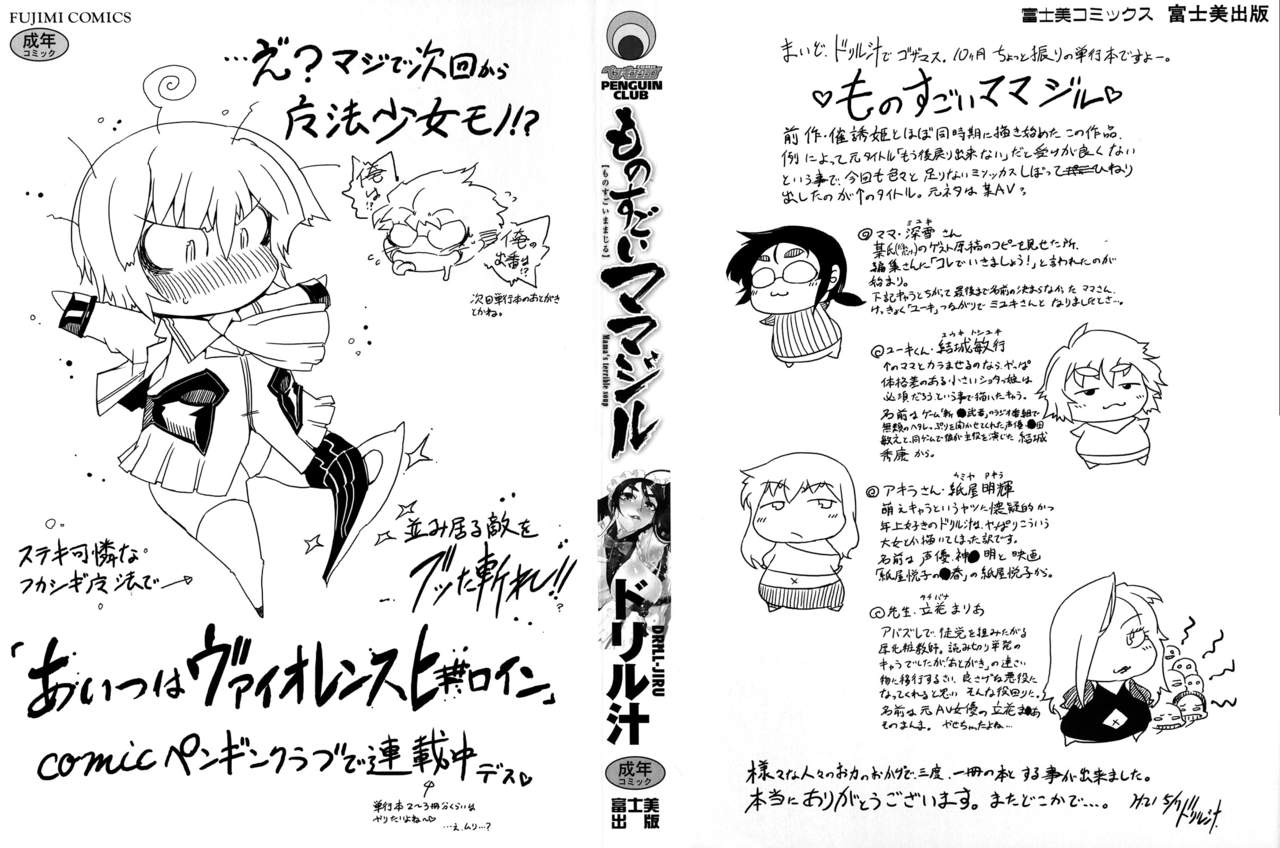 FUJIMI COMICS
成年
コミック
…え?マジで次回から
广法少女モノ!?
俺は!?
俺の
出番は!?
次回単行本のあとがき
とかね。
ステキ可憐な
フカシギ广法で→
並み居る敵を
ブッた斬れ!!
?
「あいつはヴァイオレンスヒロイン」
comicペンギンクラブで連載中デス♡
単行本2〜3冊分くらいは
やりたいよね〜♡
…え、ムリ…?
PENGUIN
CLUB
ものすごいママジル
【ものすごいままじる】
Mama's terrible soup
ドリル汁
DRILL-JIRU
成年
コミック
富士美
出版
富士美コミックス 富士美出版
まいど、ドリル汁でゴザマス。10ヶ月ちょっと振りの単行本ですよー。
♡ものすごいママジル♡
前作・催誘姫とほぼ同時期に描き始めたこの作品、
例によって元タイトル「もう後戻り出来ない」だと受けが良くない
という事で、今回も色々と足りないミソッカスしぼってひねり
出したのが↑のタイトル。元ネタは某AV?
◎ママ・深雪さん
ミユキ
某氏のゲスト原稿のコピーを見せた所、
編集さんに「コレでいきましょう!」と言われたのが
始まり。
下記キャラとちがって最後まで名前の決まらなかったママさん、
けっきょく「ユーキ」つながりでミユキさんとなりましたとさ…。
◎ユーキくん・結城敏行
ユウキ トシユキ
↑のママとカラませるのなら、やっぱ
体格差のある小さいショタっ姫は
必須だろうという事で描いたキャラ。
名前はゲーム「斬●武者」のラジオ番組で
無類のヘタレっぷりを聞かせてくれた声優・●田
敏文と、同ゲームで彼が主役を演じた結城
秀康から。
◎アキラさん・紙屋明輝
カミヤ アキラ
萌えキャラというヤツに懐疑的かつ
年上好きのドリル汁は、やっぱりこういう
大女とか描いてしまった訳です。
名前は声優・神●明と映画
「紙屋悦子の●春」の紙屋悦子から。
◎先生・立花まりあ
タチバナ
アバズレで、徒党を組みたがる
厚化粧教師。読み切り単発の
キャラでしたが「おとがき」の連さい
物に移行するさい、良さげな悪役に
なってくれると思い そんな役回りに。
名前は元AV女優の立花ま●あ
そのまんま。やせちゃったよね…
様々な人々のお力のおかげで、三度、一冊の本とする事が出来ました。
本当にありがとうございます。またどこかで…。
H21 5/7 ドリル汁